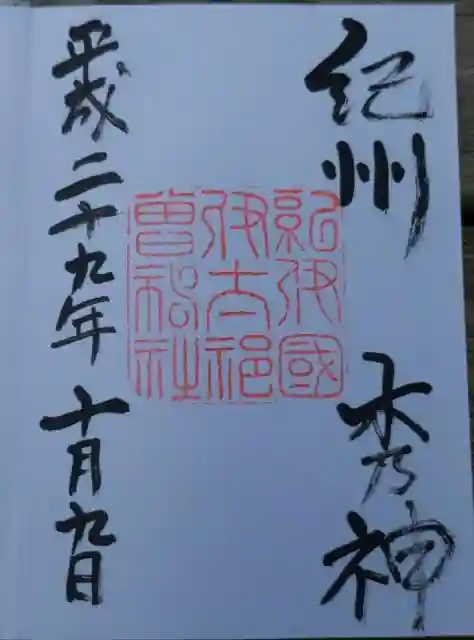 紀州 木乃神
紀伊國
伊太祁
曽神社
平成二十九年 十月九日